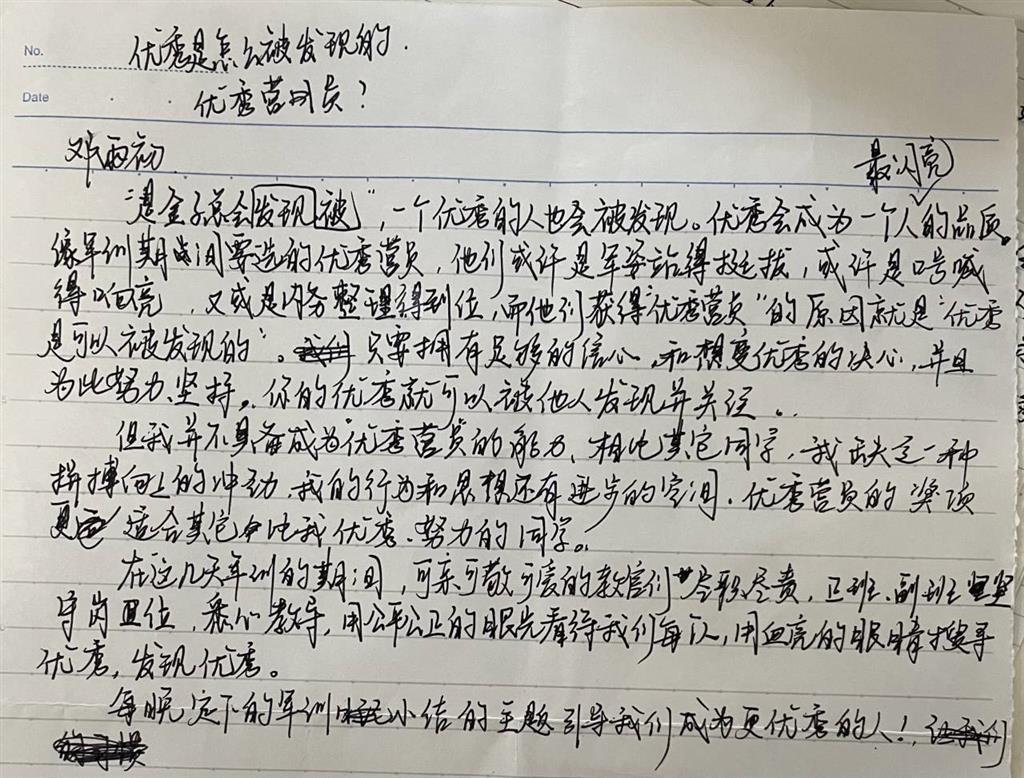 No.
优秀是怎么被发现的.
Date
优秀营员?
邓雨初
最闪亮
"是金子总会发现被",一个优秀的人也会被发现。优秀会成为一个人的品质。
像军训期间要选的优秀营员,他们或许是军姿站得挺拔,或许是口号喊
得响亮,又或是内务整理得到位,而他们获得"优秀营员"的原因就是"优秀
是可以被发现的"。只要拥有足够的信心,和想变优秀的决心,并且
为此努力、坚持,你的优秀就可以被他人发现并关注。
但我并不具备成为"优秀营员"的能力、相比其它同学,我缺失这一种
拼搏向上的冲动、我的行为和思想还有进步的空间.优秀营员的奖项
更适合其它比我优秀、努力的同学。
在这几天军训的期间,可亲可敬可爱的教官们尽职尽责,正班、副班坚
守岗位,悉心教导,用公平公正的眼光看待我们每人,用血亮的眼睛搜寻
优秀,发现优秀。
每晚定下的军训小结的主题引导我们成为更优秀的人!